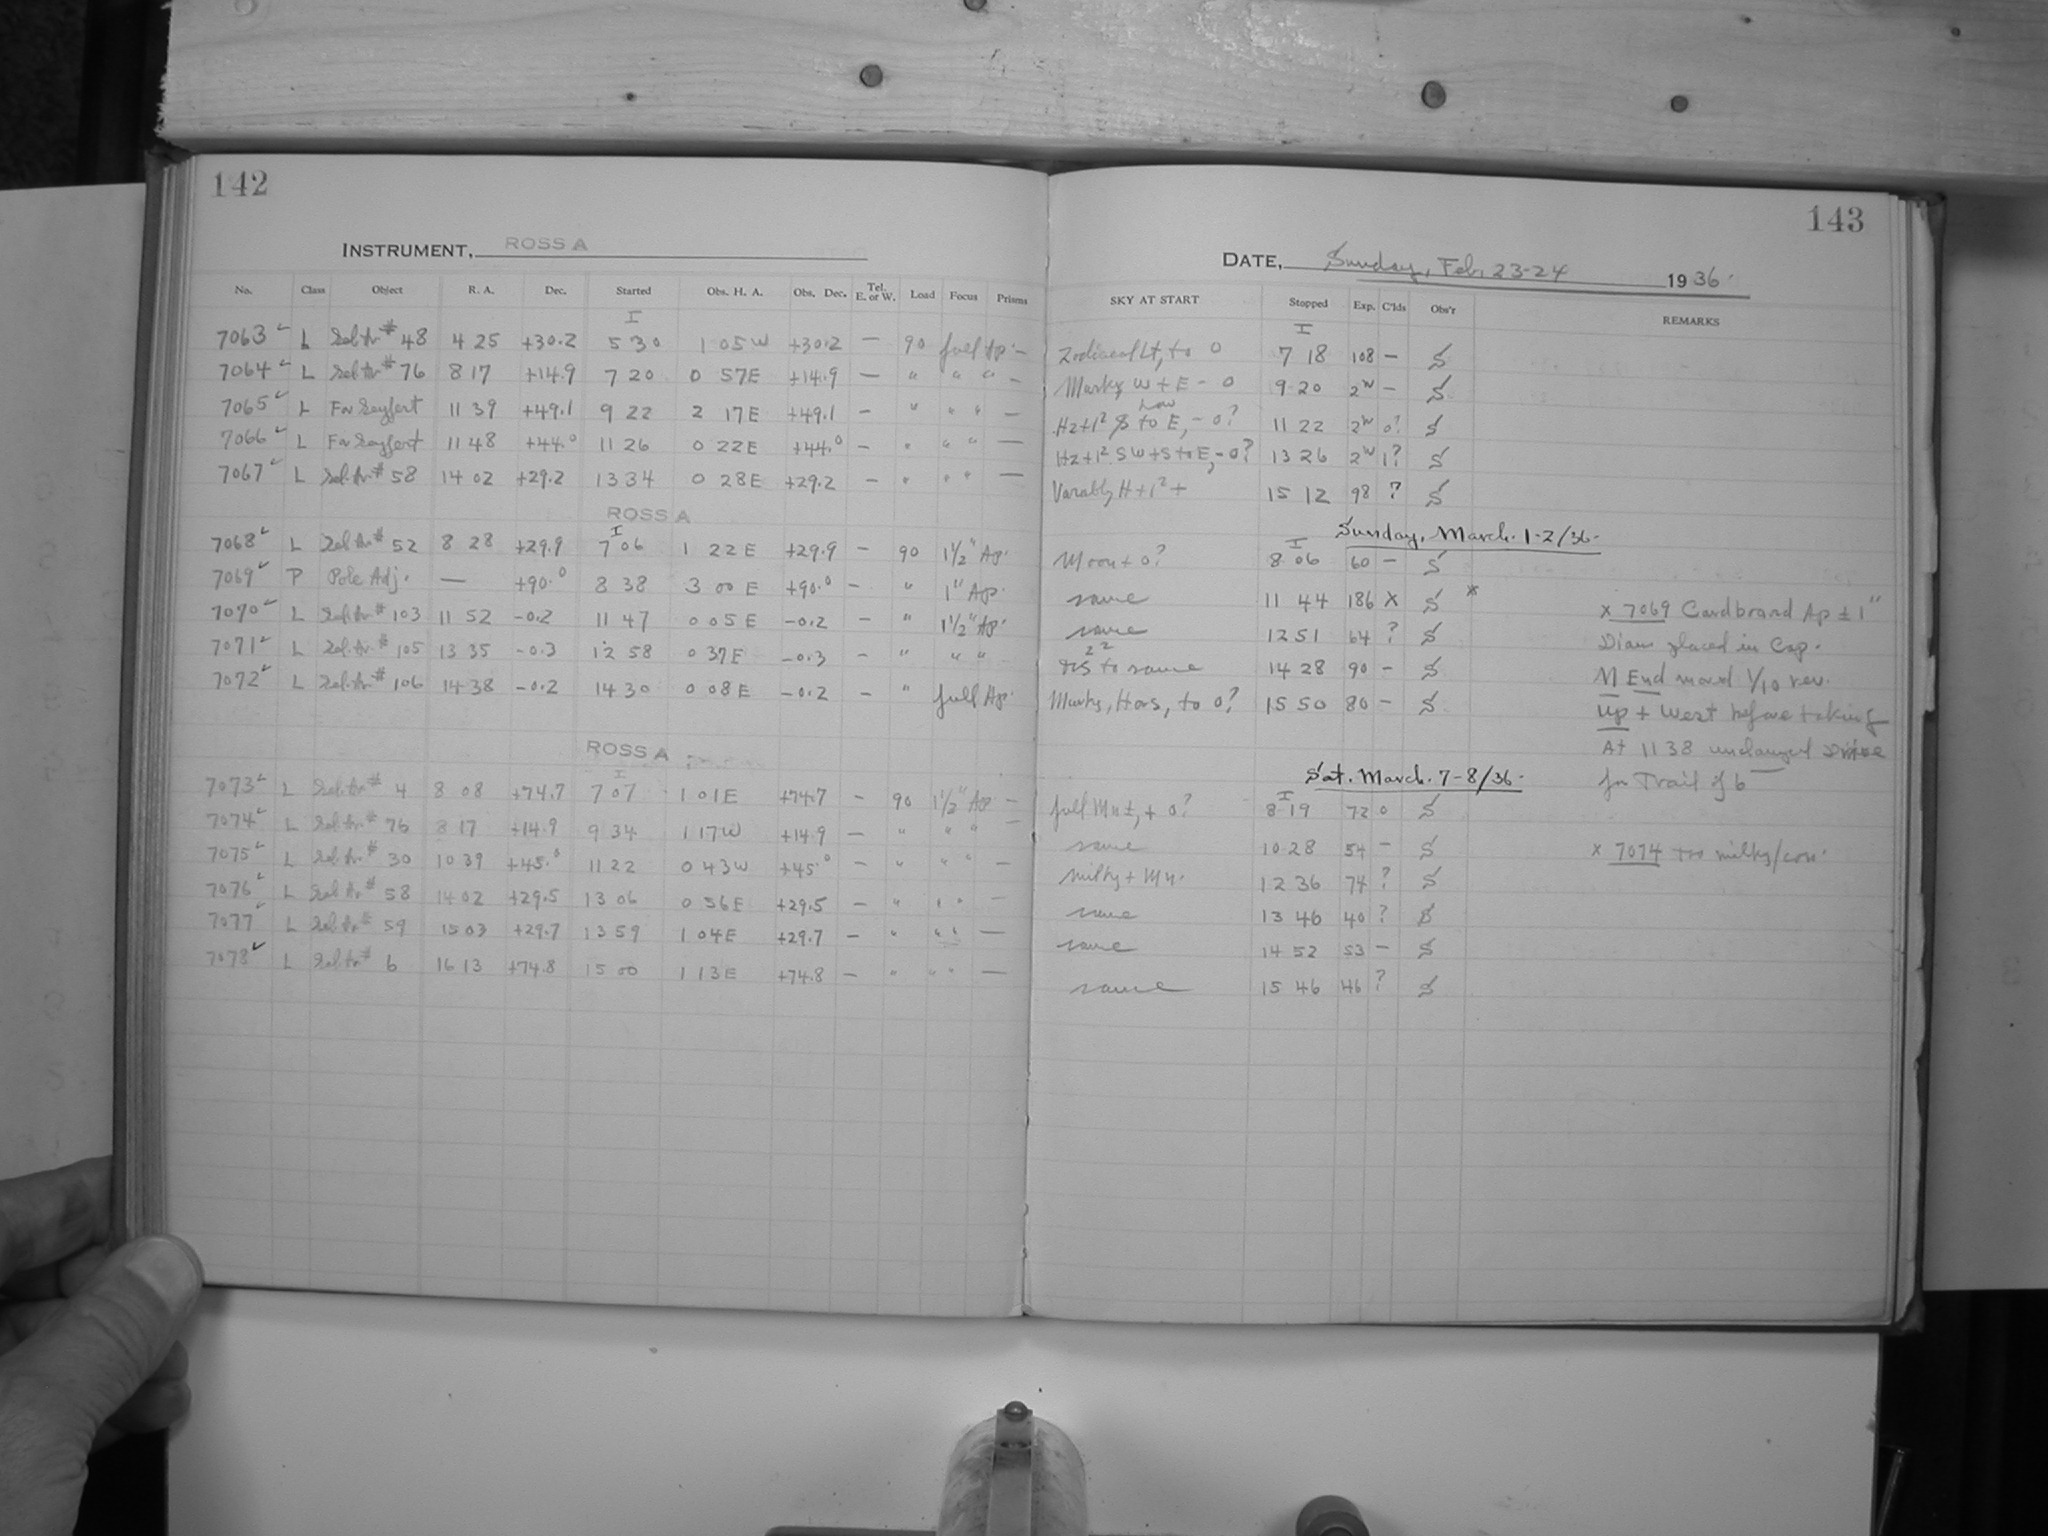 142
INSTRUMENT, ROSS A
No. Class Object R. A. Dec. Started Obs. H. A. Obs. Dec. Tel. E. or W. Load Focus Prisms
I
7063 L Sel. Ar # 48 4 25 +30.2 5 30 1 05 W +30.2 — 90 full Ap. —
7064 L Sel. Ar # 76 8 17 +14.9 7 20 0 57 E +14.9 — " " " —
7065 L For Seyfert 11 39 +49.1 9 22 2 17 E +49.1 — " " " —
7066 L For Seyfert 11 48 +44.0 11 26 0 22 E +44.0 — " " " —
7067 L Sel. Ar. # 58 14 02 +29.2 13 34 0 28 E +29.2 — " " " —
ROSS A
I
7068 L Sel. Ar. # 52 8 28 +29.9 7 06 1 22 E +29.9 — 90 1½" Ap.
7069 P Pole Adj. — +90.0 8 38 3 00 E +90.0 — " 1" Ap.
7070 L Sel. Ar # 103 11 52 -0.2 11 47 0 05 E -0.2 — " 1½" Ap.
7071 L Sel. Ar. # 105 13 35 -0.3 12 58 0 37 E -0.3 — " " "
7072 L Sel. Ar. # 106 14 38 -0.2 14 30 0 08 E -0.2 — " full Ap.
ROSS A
I
7073 L Sel. Ar # 4 8 08 +74.7 7 07 1 01 E +74.7 — 90 1½" Ap. —
7074 L Sel. Ar # 76 8 17 +14.9 9 34 1 17 W +14.9 — " " " —
7075 L Sel. Ar. # 30 10 39 +45.0 11 22 0 43 W +45.0 — " " " —
7076 L Sel. Ar # 58 14 02 +29.5 13 06 0 56 E +29.5 — " " " —
7077 L Sel. Ar # 59 15 03 +29.7 13 59 1 04 E +29.7 — " " " —
7078 L Sel. Ar # 6 16 13 +74.8 15 00 1 13 E +74.8 — " " " —
143
DATE, Sunday, Feb. 23-24 1936.
SKY AT START Stopped Exp. C'lds Obs'r REMARKS
I
Zodiacal Lt, to 0 7 18 108 — S
Murky W + E - 0 9 20 2W — S
Low
Hz + 1² S to E, - 0? 11 22 2W 0? S
Hz + 1² SW + S to E, - 0? 13 26 2W 1? S
Variably H + 1² + 15 12 98 ? S
Sunday, March. 1-2/36.
I
Moon + 0? 8 06 60 — S
same 11 44 186 X S *
same 12 51 64 ? S
to same 14 28 90 — S
Murky, Hors, to 0? 15 50 80 — S
x 7069 Cardboard Ap ± 1"
Diam placed in Cap.
N End moved 1/10 rev.
up + West before taking
At 11 38 unclamped
for Trail of 6
Sat. March. 7-8/36.
I
full Mn ±, + 0? 8 19 72 0 S
same 10 28 54 — S
x 7074 too milky/con.
milky + Mn. 12 36 74 ? S
same 13 46 40 ? S
same 14 52 53 — S
same 15 46 46 ? S